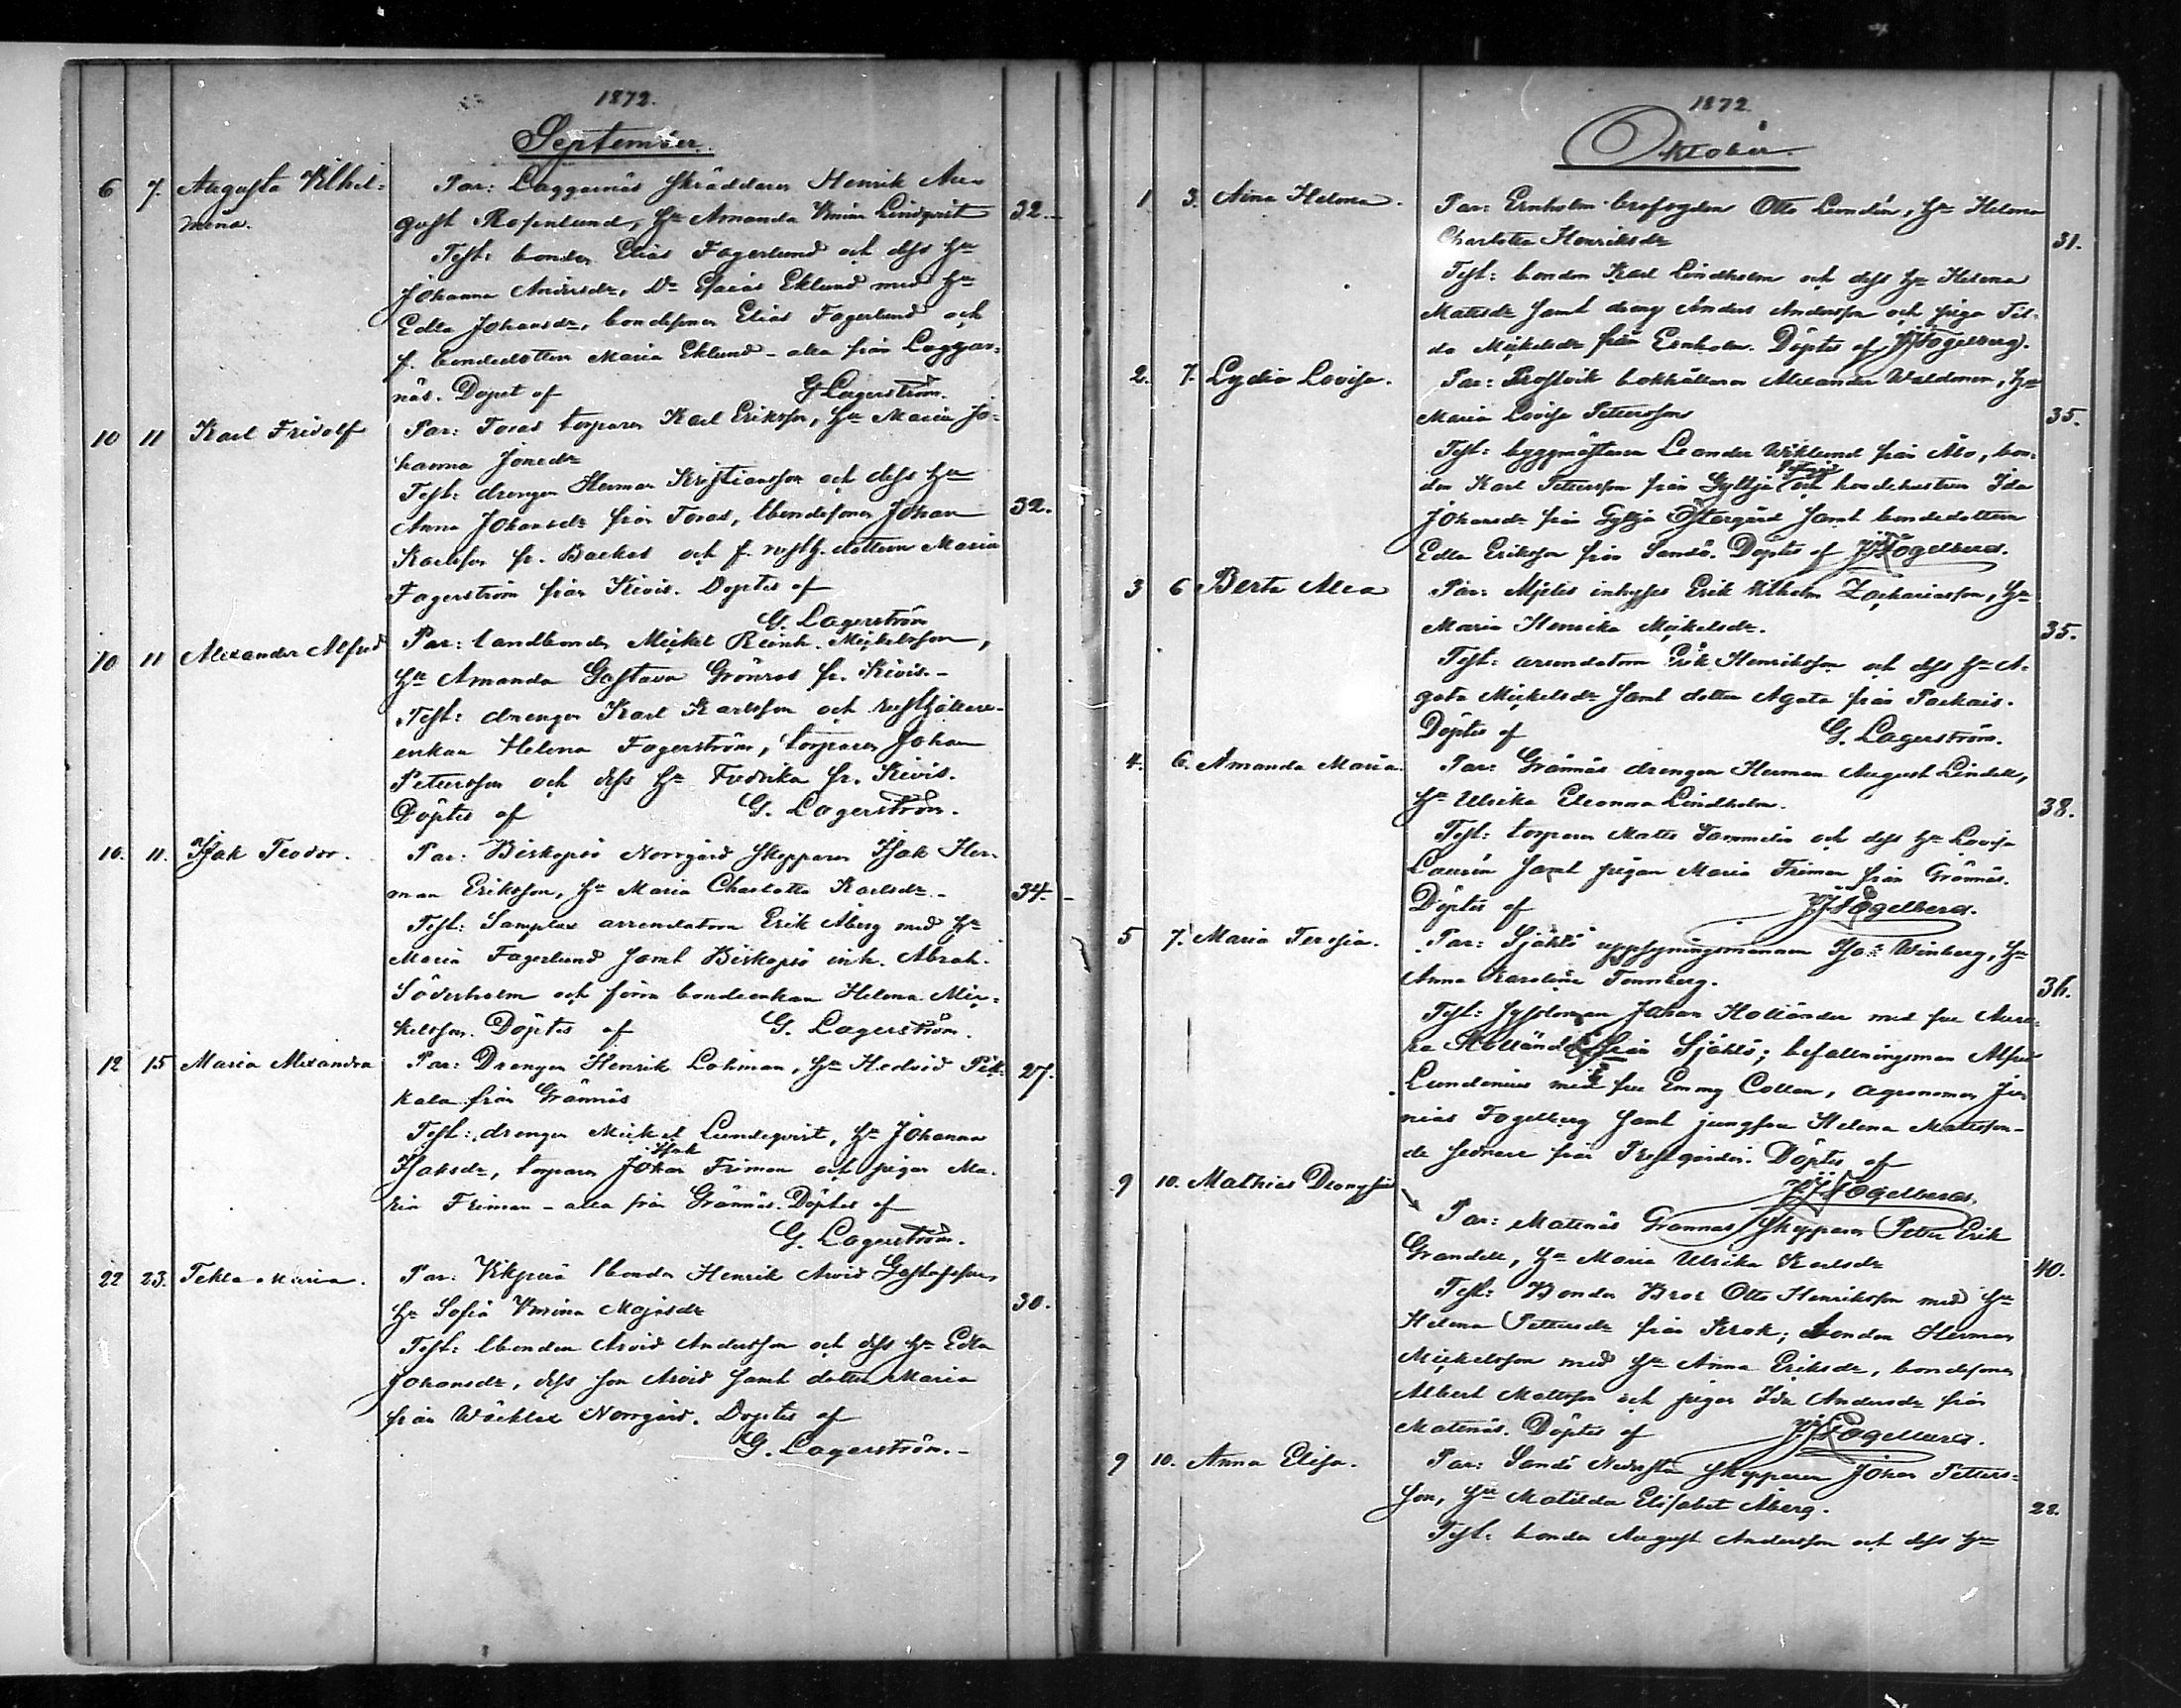 1872.
September.
6 7. Augusta Vilhel- Par: Laggarnäs skräddaren Henrik Au-
mina. gust Rosenlund, Hu Amanda Vmina Lindqvist 32.
Test: bonden Elias Fagerlund och dess Hu
Johanna Andersdr, Do Esaias Eklund med Hu
Edla Johansdr, bondesonen Elias Fagerlund och
f. bondedottern Maria Eklund - alla från Laggar-
näs. Döpet af G Lagerström.
10 11 Karl Fridolf Par: Toras torparen Karl Eriksson, Hu Maria Jo-
hanna Jonedr
Test: drengen Herman Kristiansson och dess Hu
Anna Johansdr från Toras, lbondesonen Johan 32.
Karlsson fr. Backas och f. rusth. dottern Maria
Fagerström från Kivis. Döptes af
G. Lagerström
10 11 Alexander Alfred Par: landbonden Mickel Reinh. Mickelsson,
Hu Amanda Gustava Grönros fr. Kivis.-
Test: drengen Karl Karlsson och rusthållare-
enkan Helena Fagerström, torparen Johan
Petersson och dess Hu Fredrika fr. Kivis.
Döptes af G. Lagerström.
10. 11. Isak Teodor. Par: Biskopsö Norrgård skepparen Isak Her-
man Eriksson, Hu Maria Charlotta Karlsdr.- 34.
Test: Samplax arrendatorn Erik Åberg med Hu
Maria Fagerlund samt Biskopsö inh. Abrah.
Söderholm och förra bondeenkan Helena Mic-
kelsson. Döptes af G. Lagerström.
12 15 Maria Alexandra Par: Drengen Henrik Lohman, Hu Hedvid Pik- 27.
kala från Grännäs
Test: drengen Mickel Lundeqvist, Hu Johanna
Isak
Isaksdr, torparen Johan Friman och pigan Ma-
ria Friman - alla från Grännäs. Döptes af
G. Lagerström.
22 23. Tekla Maria. Par: lbonden Henrik Arvid Gustafsson,
Hu Sofia Vmina Majasdr 30.
Test: lbonden Arvid Andersson och dess Hu Edla
Johansdr, dess son Arvid samt dotter Maria
från Wäcklax Norrgård. Döptes af
G. Lagerström.-
1872
Oktober.
1 3. Aina Helena. Par: Ernholm Otto Lundén, Hu Helena
Charlotta Henriksdr 31.
Test: bonden Karl Lindholm och dess Hu Helena
Matsdr samt dreng Anders Andersson och piga Til-
da Mickelsdr från Ernholm. Döptes af JJFogelberg.
2. 7. Lydia Lovisa. Par: Prostvik bokhållaren Alexander Waldemar, Hu
Maria Lovisa Petersson 35.
Test: byggmästaren Leander Wiklund från Åbo, bon-
den Karl Petersson från Gyttja och bondehustrun Ida
Johansdr från Gyttja Östergård samt bondedottern
Edla Eriksson från Sandö. Döptes af JJFogelberg.
3 6 Berta Alva Par: Mjelis inhyses Erik Vilhelm Zachariasson, Hu
Maria Henrika Mickelsdr. 35.
Test: arrendatorn Erik Henriksson och dess Hu A-
gata Mickelsdr samt dotter Agata från Parkais.
Döptes af G. Lagerström.
4. 6. Amanda Maria. Par: Grännäs drengen Herman August Lindell,
Hu Ulrika Eleonora Lindholm. 38.
Test: torparen Matts Sammelin och dess Hu Lovisa
Laurén samt pigan Maria Friman från Grännäs.
Döptes af JJFogelberg.
5 7. Maria Teresia. Par: Själö uppsyningsmannen Winberg, Hu
Anna Karolina Tennberg. 36.
Test: sysslomannen Johan Holländer med fru Auro-
ra Holländer från Själö; befallningsman Alfred
Lundenius med fru Emmy Collan, agronomen Je-
nias Fogelberg samt jungfru Helena Matsson-
de sednare från Prestgården. Döptes af
JJFogelberg.
9 10. Mathias Dionysius Par: Matnäs Grannas skepparen Peter Erik
Grandell, Hu Maria Ulrika Karlsdr 40.
Test: Bonden Bror Otto Henriksson med Hu
Helena Petersdr från Krok; bonden Herman
Mickelsson med Hu Anna Eriksdr, bondesonen
Albert Mattsson och pigan Ida Andersdr från
Matnäs. Döptes af JJFogelberg.
9 10. Anna Elisa. Par: Sandö Nedersta skepparen Johan Petters-
son, Hu Matilda Elisabet Åberg. 22.
Test: bonden August Andersson och dess Hu